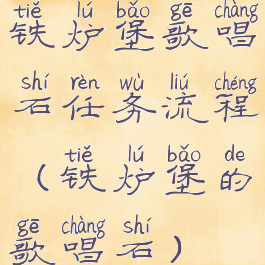 tiě lú bǎo gē chàng
铁炉堡歌唱
shí rèn wù liú chéng
石任务流程
tiě lú bǎo de
（铁炉堡的
gē chàng shí
歌唱石）